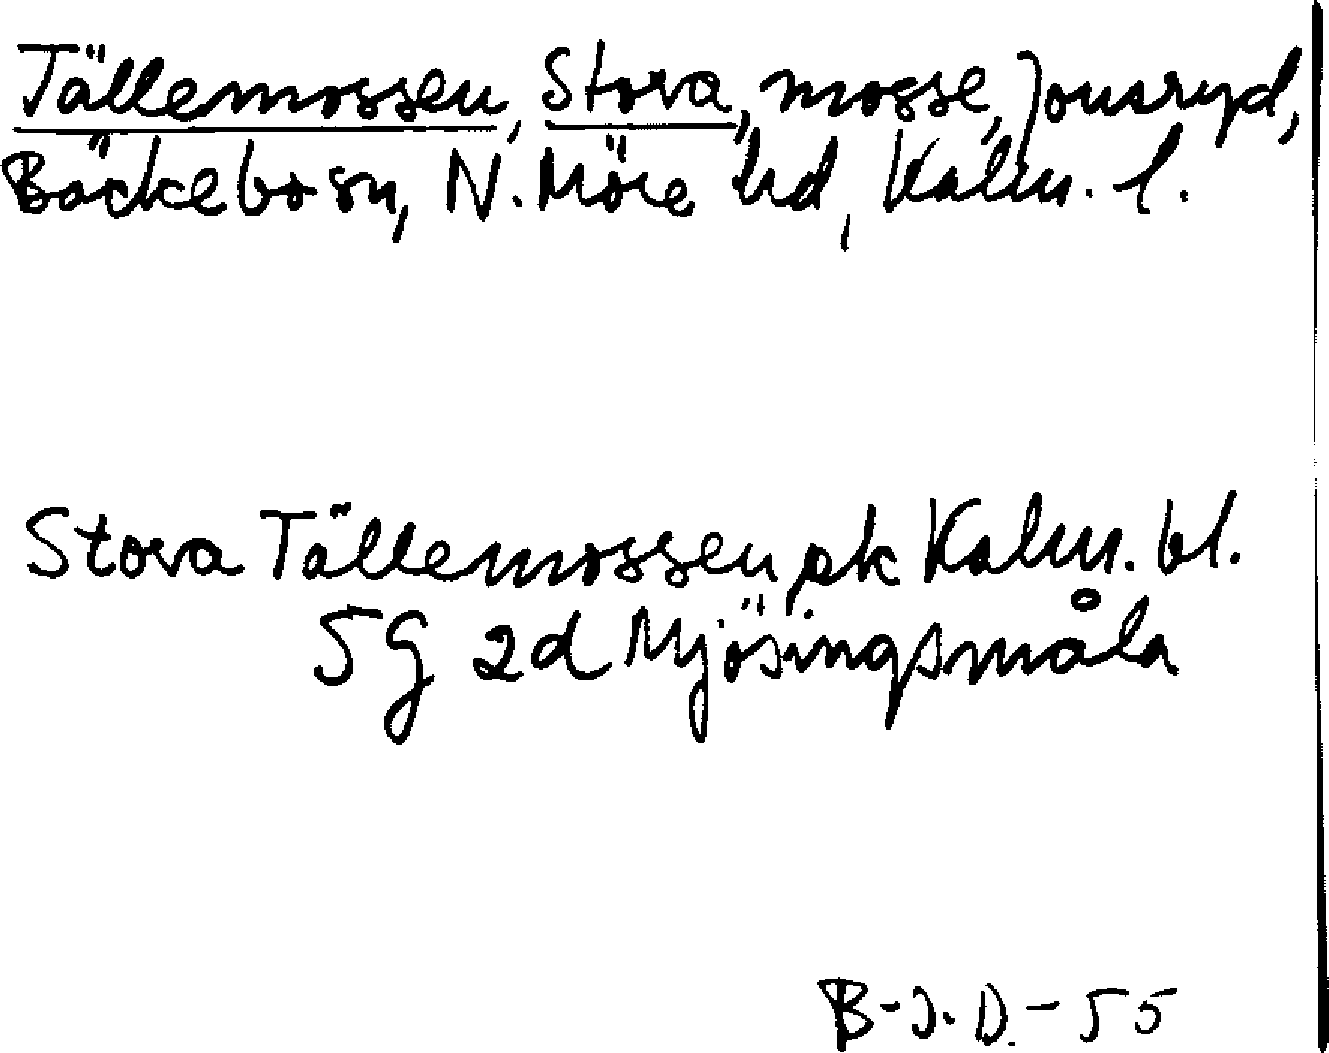 Tällemossen, Stora, mosse, Jonsryd,
Bäckebo sn, N. Möre hd, Kalm. l.
Stora Tällemossen, ek Kalm. bl.
5G 2d Mjösingsmåla
B-J.D.-55